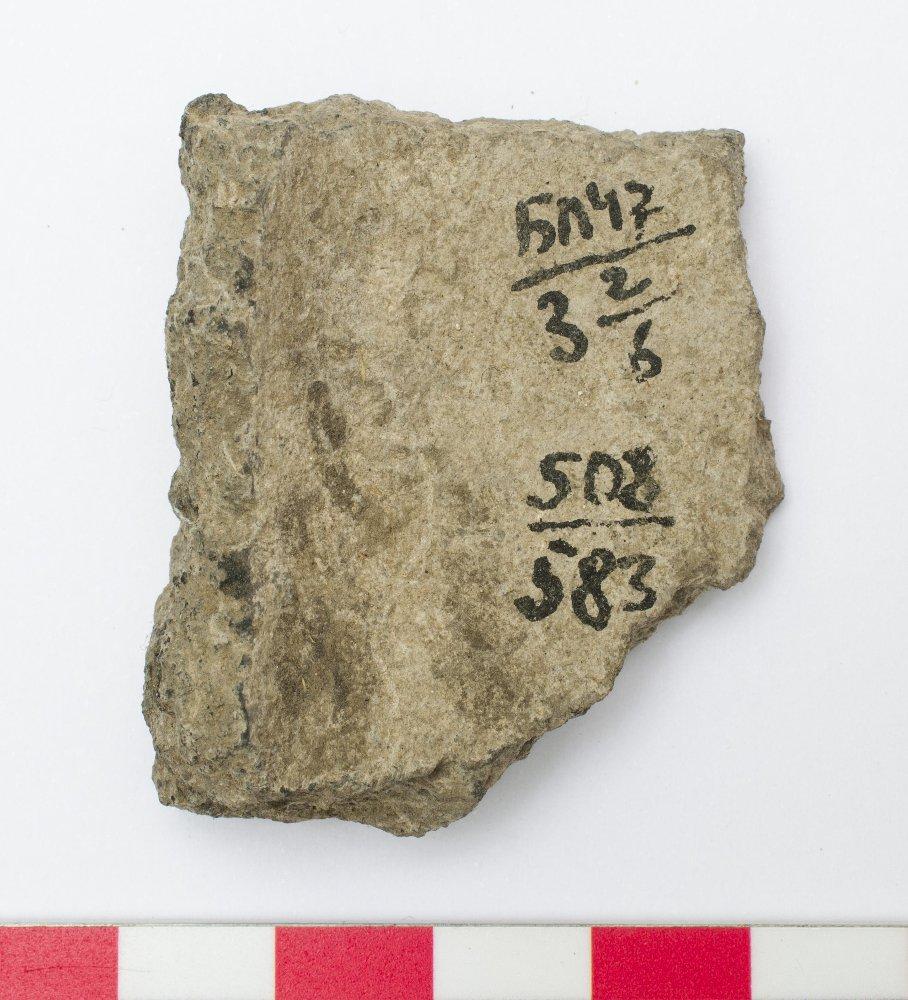 БП47
3 2/6
508
583